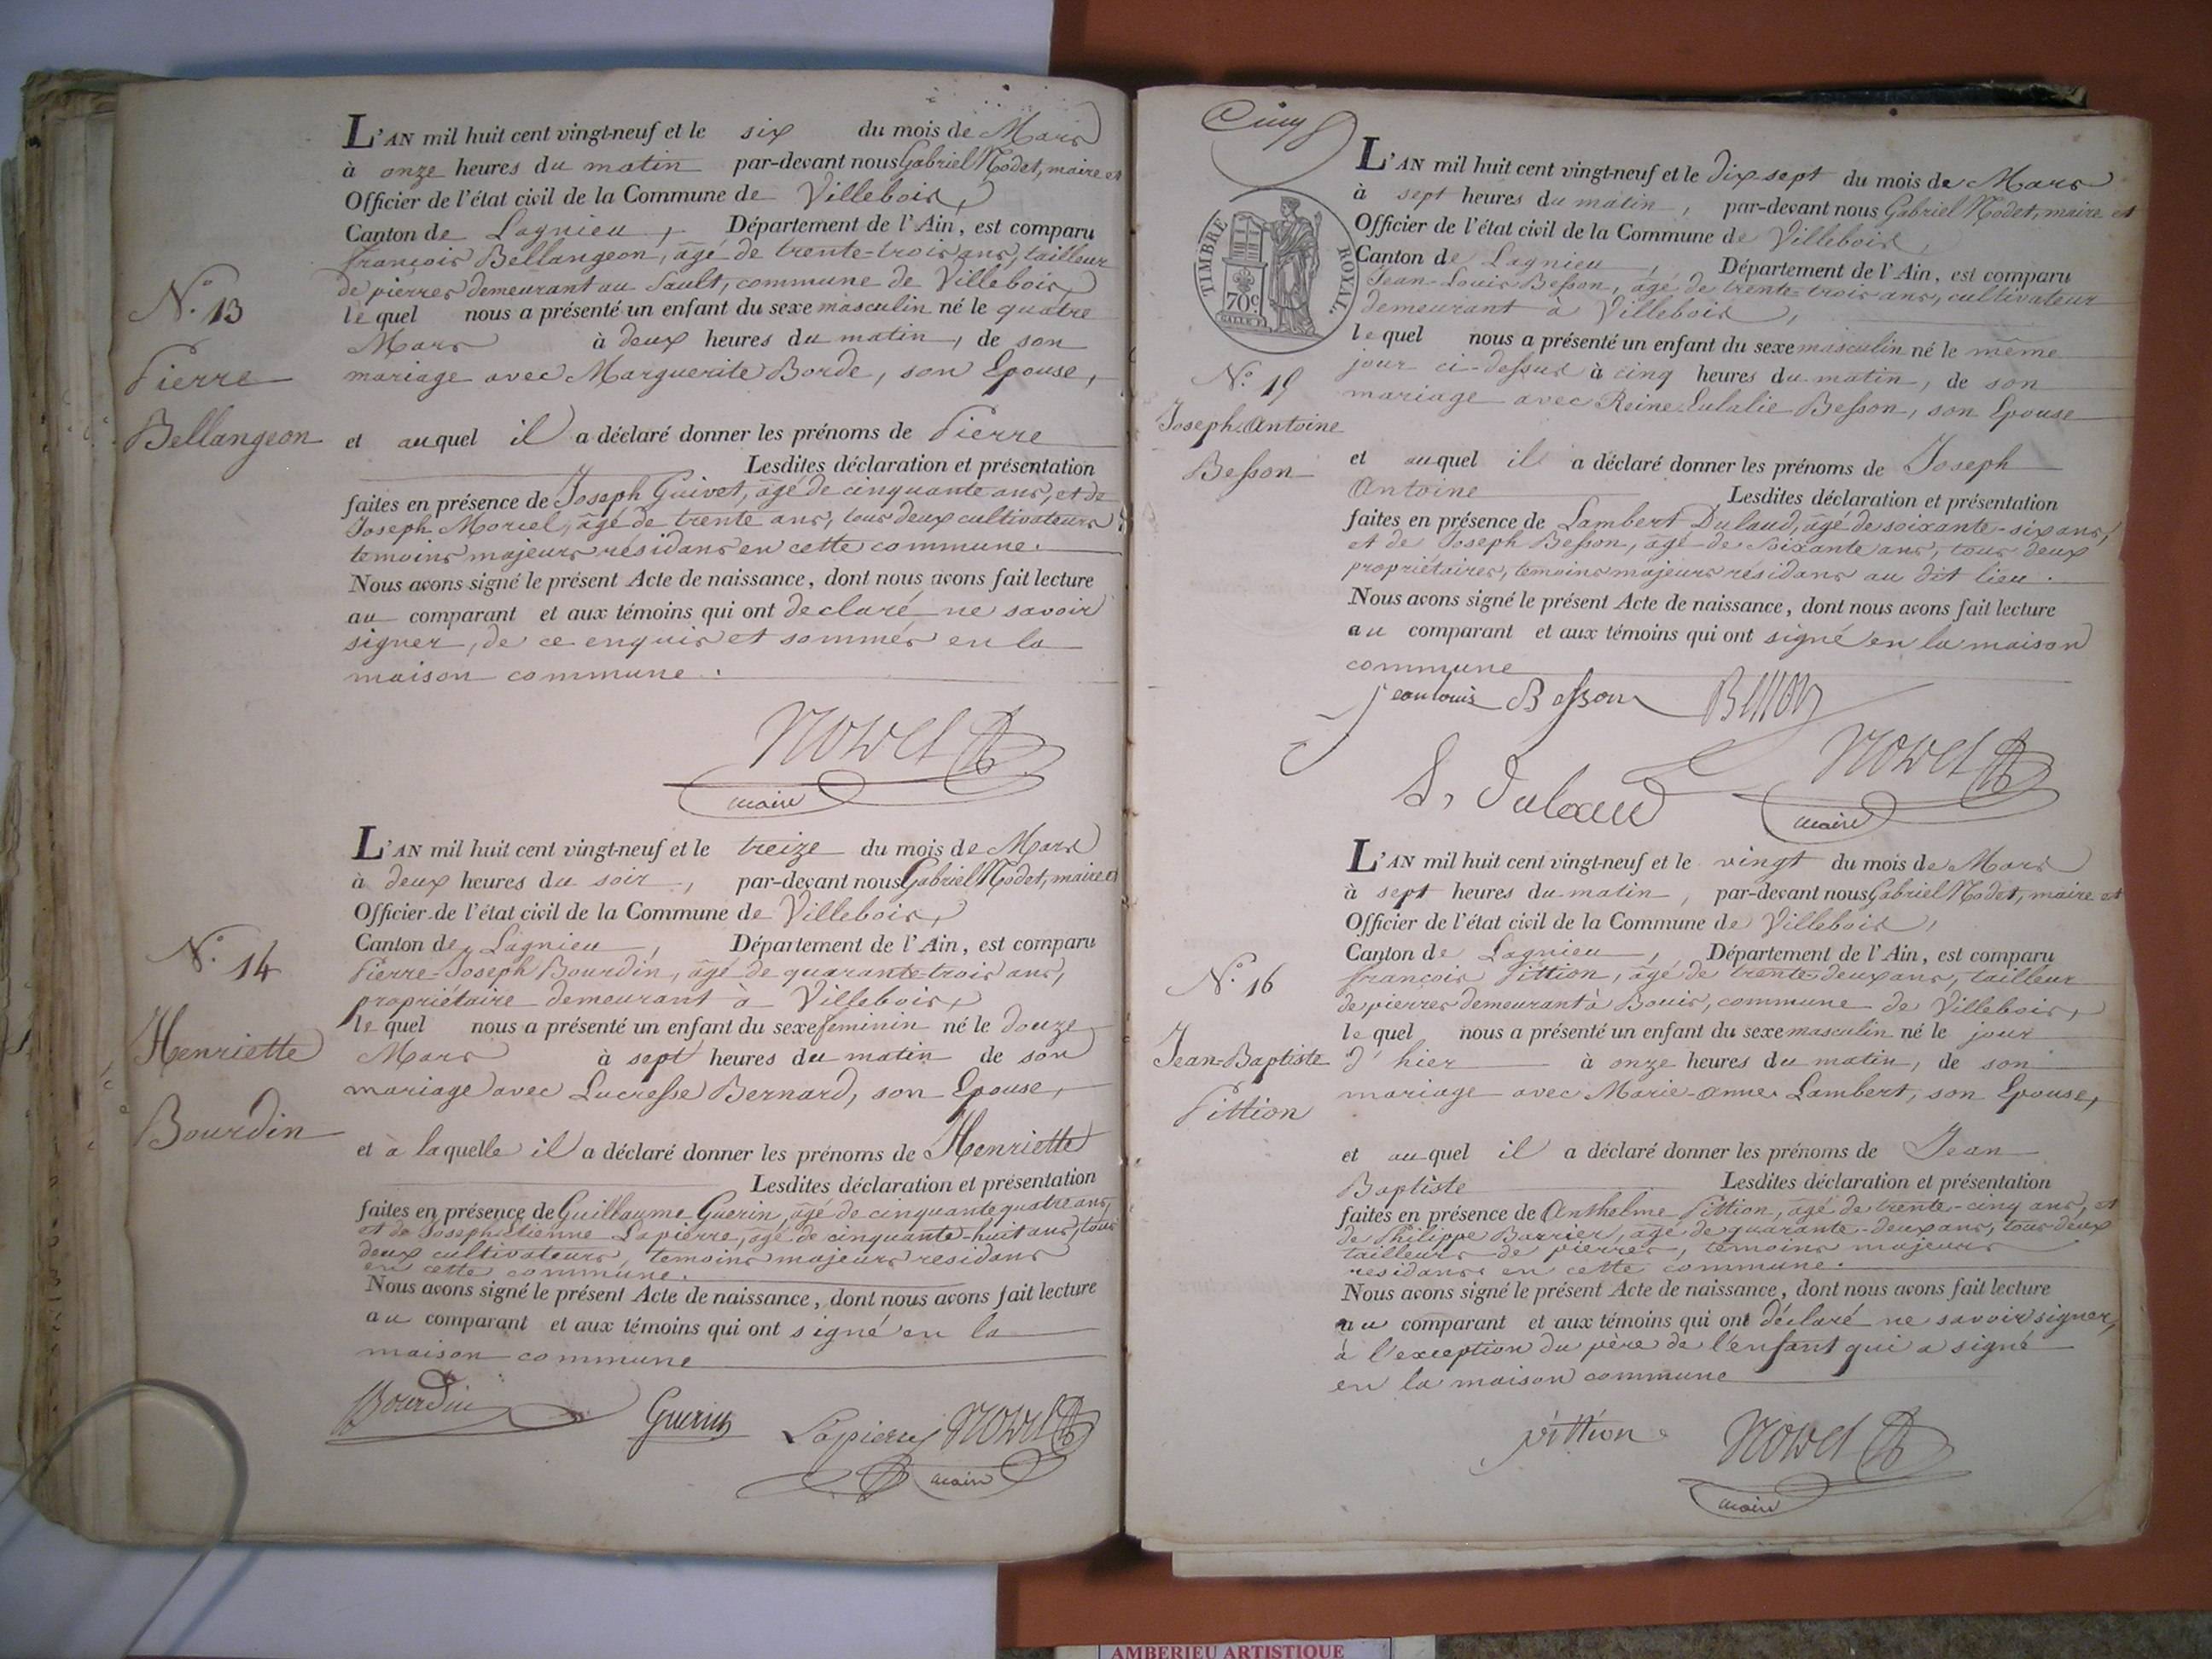 L'AN mil huit cent vingt-neuf et le six du mois de Mars
à onze heures du matin par-devant nous Gabriel Nodet, maire et
Officier de l'état civil de la Commune de Villebois,
Canton de Lagnieu, Département de l'Ain, est comparu
françois Bellangeon, âgé de trente-trois ans, tailleur
de pierres demeurant au Sault, commune de Villebois,
N.° 13
le quel nous a présenté un enfant du sexe masculin né le quatre
Mars à deux heures du matin, de son
Pierre
mariage avec Marguerite Borde, son Epouse,
Bellangeon
et auquel il a déclaré donner les prénoms de Pierre
Lesdites déclaration et présentation
faites en présence de Joseph Guivet, âgé de cinquante ans, et de
Joseph Morcel, âgé de trente ans, tous deux cultivateurs
temoins majeurs résidans en cette commune.
Nous avons signé le présent Acte de naissance, dont nous avons fait lecture
au comparant et aux témoins qui ont declaré ne savoir
signer, de ce enquis et sommés en la
maison commune.
Nodet
maire
L'AN mil huit cent vingt-neuf et le treize du mois de Mars
à deux heures du soir, par-devant nous Gabriel Nodet, maire et
Officier de l'état civil de la Commune de Villebois,
Canton de Lagnieu, Département de l'Ain, est comparu
N.° 14
Pierre-Joseph Bourdin, âgé de quarante-trois ans,
propriétaire demeurant à Villebois,
le quel nous a présenté un enfant du sexe feminin né le douze
Henriette
Mars à sept heures du matin de son
mariage avec Lucresse Bernard, son Epouse,
Bourdin
et à laquelle il a déclaré donner les prénoms de Henriette
Lesdites déclaration et présentation
faites en présence de Guillaume Guerin, âgé de cinquante quatre ans,
et de Joseph Etienne Lapierre, âgé de cinquante-huit ans, tous
deux cultivateurs, temoins majeurs residans
en cette commune.
Nous avons signé le présent Acte de naissance, dont nous avons fait lecture
au comparant et aux témoins qui ont signé en la
maison commune
Bourdin Guerin Lapierre Nodet
maire
Cinq
L'AN mil huit cent vingt-neuf et le dix-sept du mois de Mars
à sept heures du matin, par-devant nous Gabriel Nodet, maire et
Officier de l'état civil de la Commune de Villebois,
Canton de Lagnieu, Département de l'Ain, est comparu
TIMBRE ROYAL.
70c.
Jean-Louis Besson, âgé de trente-trois ans, cultivateur
demeurant à Villebois,
le quel nous a présenté un enfant du sexe masculin né le même
N.° 15
jour ci-dessus à cinq heures du matin, de son
mariage avec Reine Eulalie Besson, son Epouse
Joseph-Antoine
Besson
et auquel il a déclaré donner les prénoms de Joseph
Antoine Lesdites déclaration et présentation
faites en présence de Lambert Dulaud, âgé de soixante-six ans,
et de Joseph Besson, âgé de soixante ans, tous deux
propriétaires, temoins majeurs résidans au dit lieu.
Nous avons signé le présent Acte de naissance, dont nous avons fait lecture
au comparant et aux témoins qui ont signé en la maison
commune
jean louis Besson Besson
L, Dulaud Nodet
maire
L'AN mil huit cent vingt-neuf et le vingt du mois de Mars
à sept heures du matin, par-devant nous Gabriel Nodet, maire et
Officier de l'état civil de la Commune de Villebois,
Canton de Lagnieu, Département de l'Ain, est comparu
N.° 16
françois Pittion, âgé de trente-deux ans, tailleur
de pierres demeurant à Bouis, commune de Villebois,
le quel nous a présenté un enfant du sexe masculin né le jour
Jean-Baptiste
d'hier à onze heures du matin, de son
mariage avec Marie-Anne Lambert, son Epouse,
Pittion
et auquel il a déclaré donner les prénoms de Jean
Baptiste Lesdites déclaration et présentation
faites en présence de Anthelme Pittion, âgé de trente-cinq ans, et
de Philippe Barrier, âgé de quarante-deux ans, tous deux
tailleurs de pierres, témoins majeurs
residans en cette commune.
Nous avons signé le présent Acte de naissance, dont nous avons fait lecture
au comparant et aux témoins qui ont déclaré ne savoir signer,
à l'exception du père de l'enfant qui a signé
en la maison commune
pittion Nodet
maire
AMBERIEU ARTISTIQUE